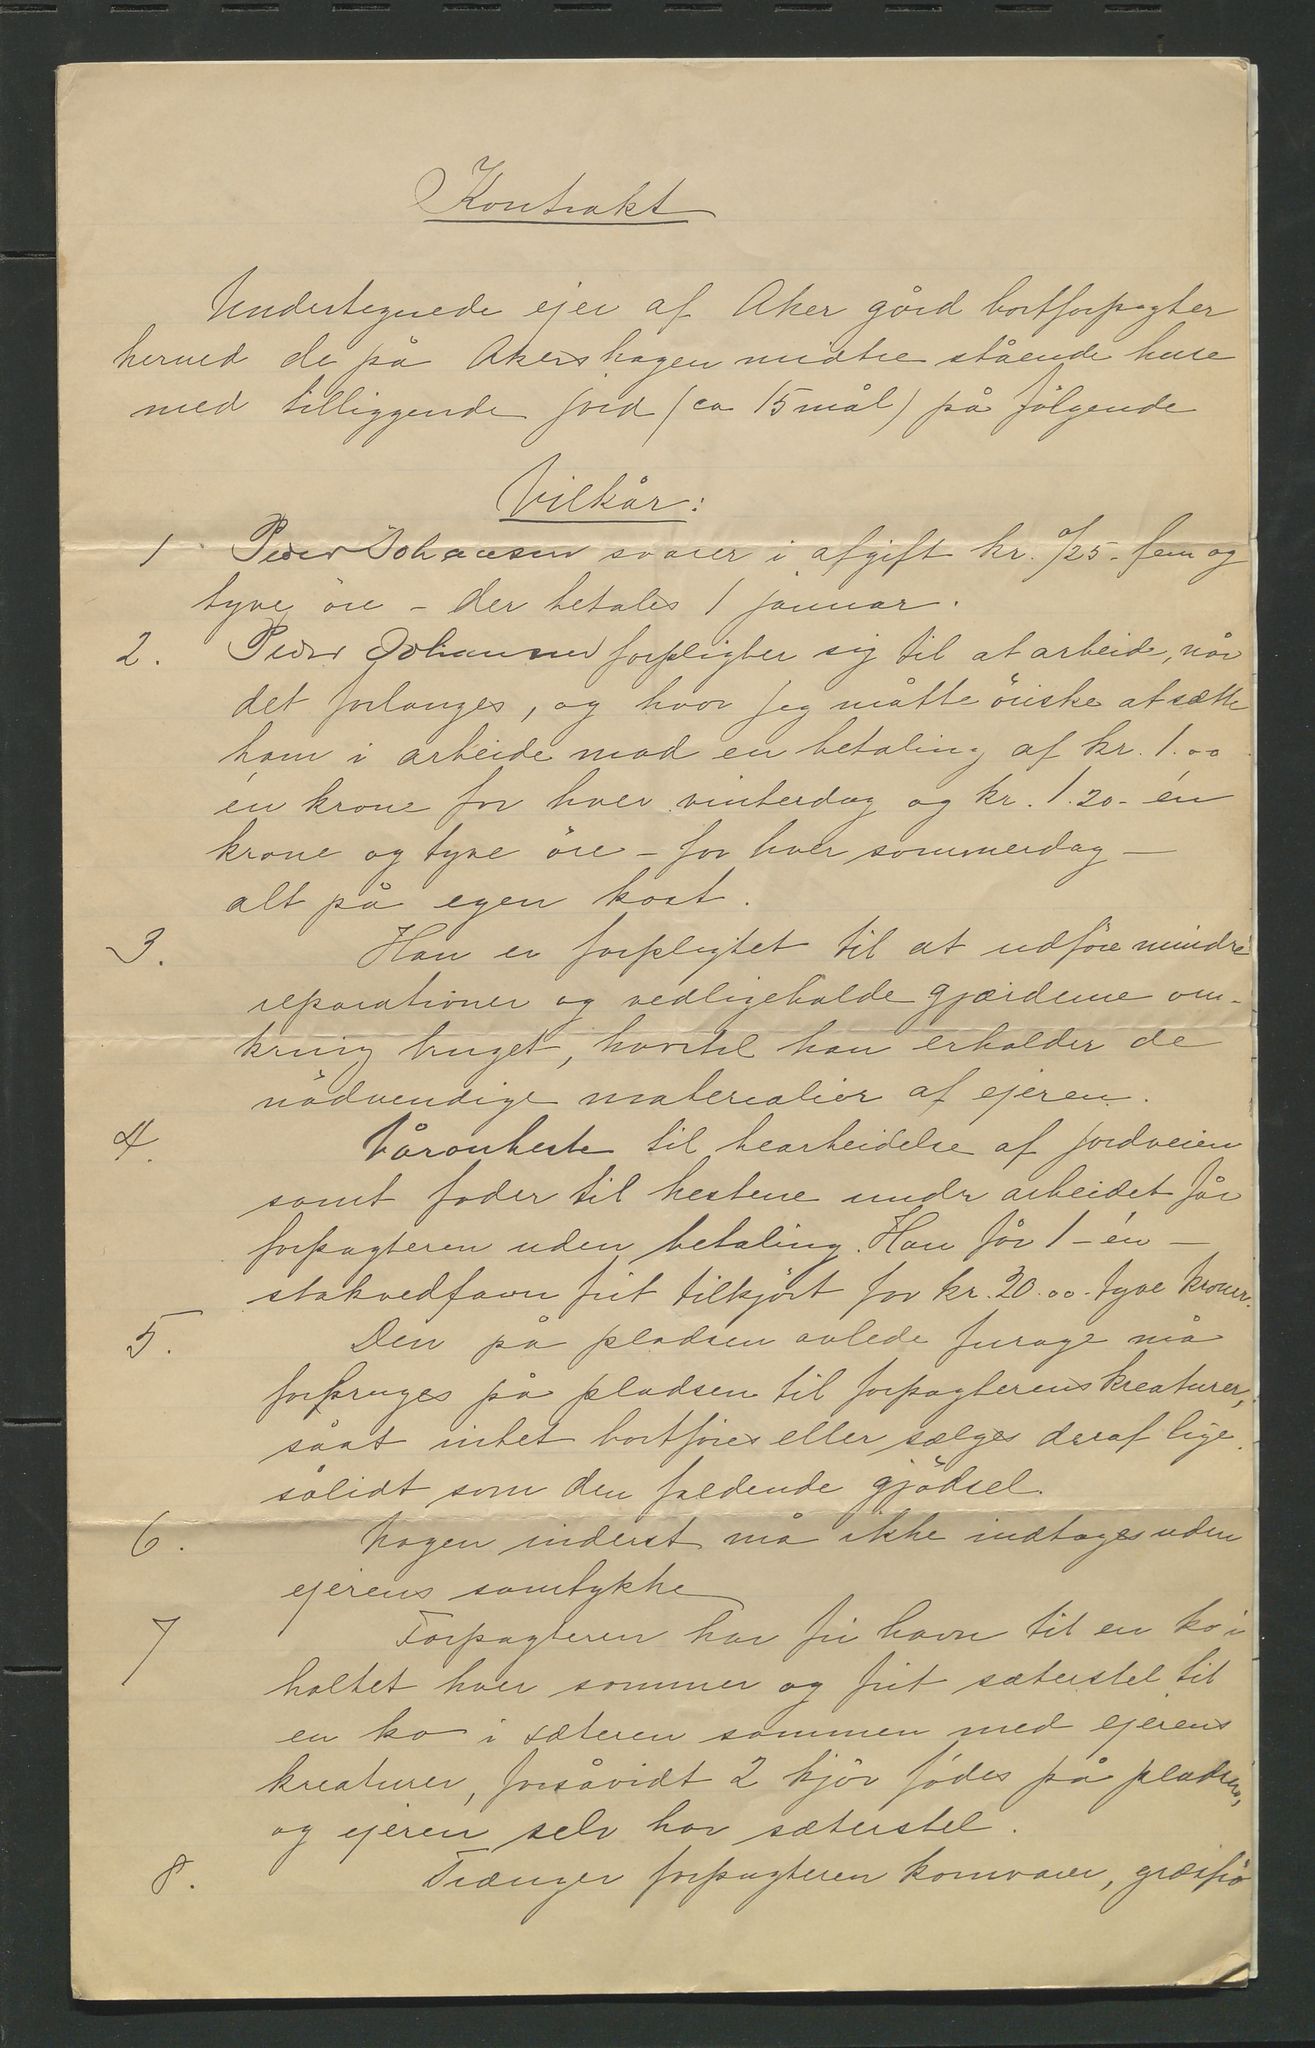 Kontrakt
Undertegnede ejer af Aker gård bortforpagter
herved de på Akershagen midtre stående huse
med tilliggende jord (ca 15 mål) på följgende
Vilkår:
1 Peder Johansen svarer i afgift kr. 0/25 - fem og
tyve öre - der betales 1 januar.
2. Peder Johansen forpligter sig til at arbeide, når
det forlanges, og hvor jeg måtte önske at sætte
ham i arbeide mod en betaling af kr. 1.00
én krone for hver vinterdag og kr. 1.20 - én
krone og tyve öre - for hver sommerdag -
alt på egen kost.
3. Han er forpligtet til at udföre mindre
reparationer og vedligeholde gjærderne om-
kring bruget, hvortil han erholder de
nödvendige materialier af ejeren.
4. Våronheste til bearbeidelse af jordveien
samt foder til hestene under arbeidet får
forpagteren uden betaling. Han får 1 - én -
stakvedfavn frit tilkjört for kr. 20.00 - tyve kroner.
5. Den på pladsen avlede furage må
forbruges på pladsen til forpagterens kreaturer,
såat intet bortföres eller sælges deraf lige
sålidt som den faldende gjödsel.
6. Nogen inderst må ikke indtages uden
ejerens samtykke
7 Forpagteren har fri havn til en ko i
holtet hver sommer og frit sæterstel til
en ko i sæteren sammen med ejerens
kreaturer, forsåvidt 2 kjör födes på pladsen,
og ejeren selv har sæterstel.
8. Trænger forpagteren kornvarer, græsfrö